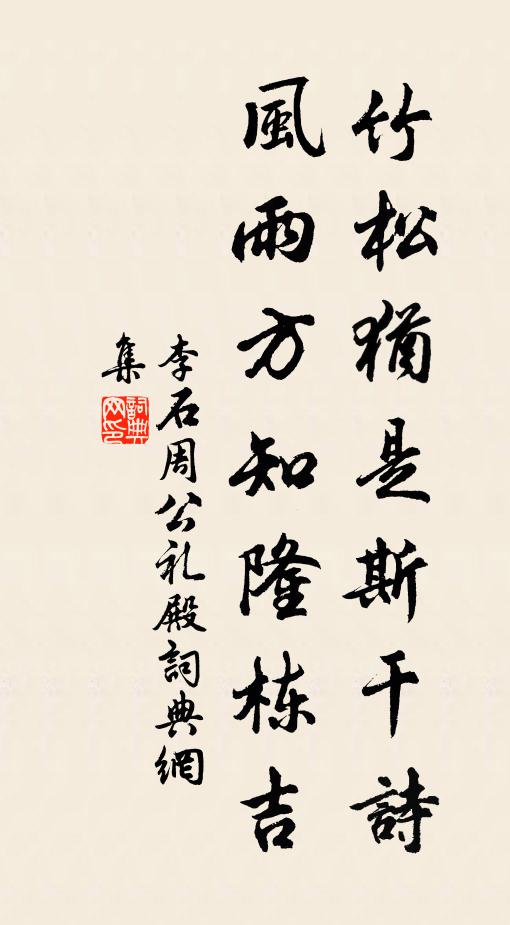 竹松猶是斯干詩
風雨方知隆栋吉
李石周公礼殿詞典網
集
詞典
网印